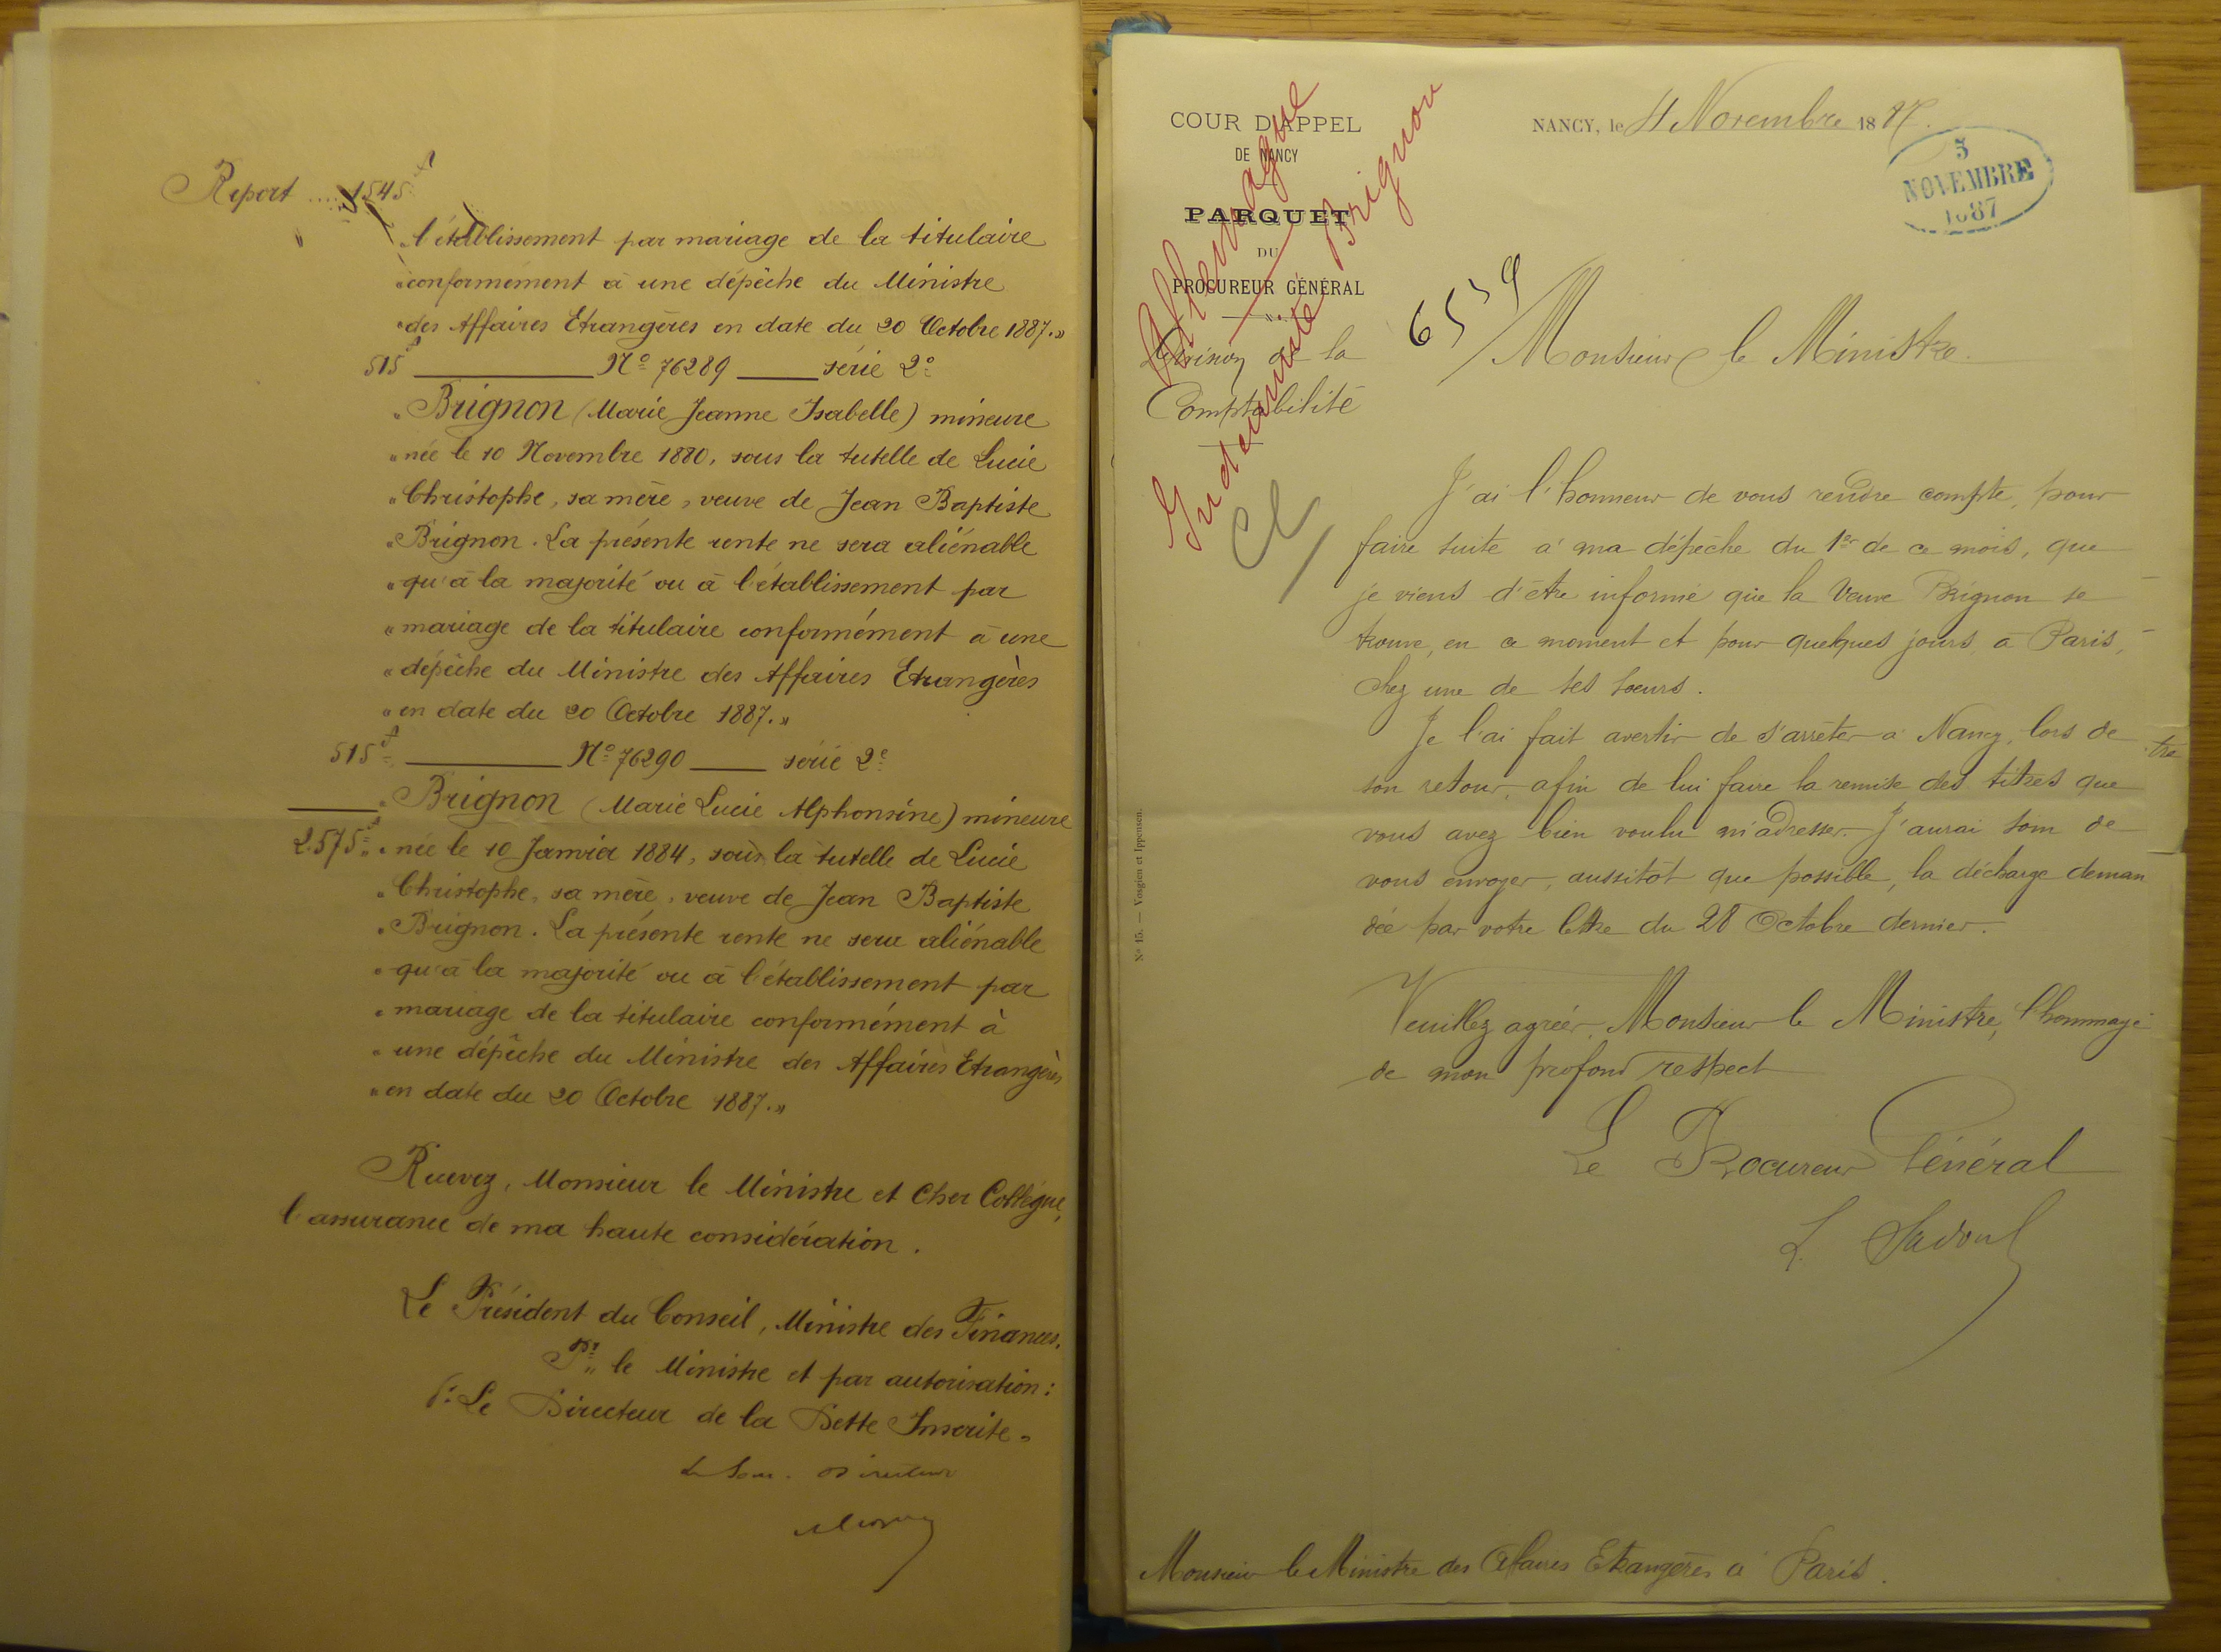 Report .... 1545f
l'établissement par mariage de la titulaire
"conformément à une dépêche du Ministre
"des Affaires Etrangères en date du 20 Octobre 1887."
515f ______ No 76289 ___ série 2e
"Brignon (Marie Jeanne Isabelle) mineure
"née le 10 Novembre 1880, sous la tutelle de Lucie
"Christophe, sa mère, veuve de Jean Baptiste
"Brignon. La présente rente ne sera aliénable
"qu'à la majorité ou à l'établissement par
"mariage de la titulaire conformément à une
"dépêche du Ministre des Affaires Etrangères
"en date du 20 Octobre 1887."
515f ______ No 76290 ___ série 2e
"Brignon (Marie Lucie Alphonsine) mineure
2.575f "née le 10 Janvier 1884, sous la tutelle de Lucie
"Christophe, sa mère, veuve de Jean Baptiste
"Brignon. La présente rente ne sera aliénable
"qu'à la majorité ou à l'établissement par
"mariage de la titulaire conformément à
"une dépêche du Ministre des Affaires Etrangères
"en date du 20 Octobre 1887."
Recevez, Monsieur le Ministre et Cher Collègue,
l'assurance de ma haute considération.
Le Président du Conseil, Ministre des Finances.
Pr. le Ministre et par autorisation:
P. Le Directeur de la Dette Inscrite.
Le Sous-Directeur
COUR D'APPEL
DE NANCY
PARQUET
DU
PROCUREUR GÉNÉRAL
Division de la
Comptabilité
Allemagne
Indemnité Brignon
NANCY, le 4 Novembre 1887.
5
NOVEMBRE
1887
6539
Monsieur le Ministre.
J'ai l'honneur de vous rendre compte, pour
faire suite à ma dépêche du 1er de ce mois, que
je viens d'être informé que la Veuve Brignon se
trouve, en ce moment et pour quelques jours, à Paris,
chez une de ses soeurs.
Je l'ai fait avertir de s'arrêter à Nancy, lors de
son retour, afin de lui faire la remise des titres que
vous avez bien voulu m'adresser. J'aurai soin de
vous envoyer, aussitôt que possible, la décharge deman
dée par votre lettre du 28 Octobre dernier.
Veuillez agréer, Monsieur le Ministre, l'hommage
de mon profond respect
Le Procureur Général
L. Sadoul
Monsieur le Ministre des Affaires Etrangères à Paris.
No 15. — Vosgien et Ippensen.
tre